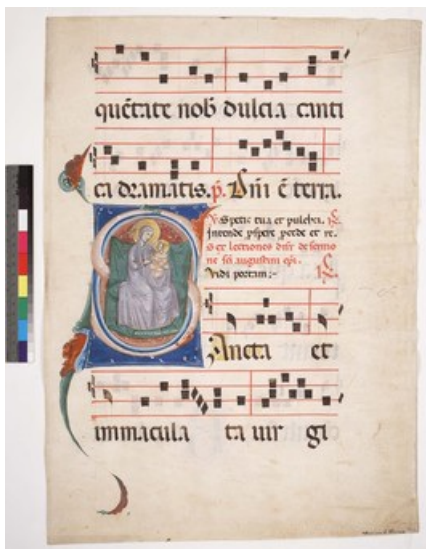 quētate nob dulcia canti
ca dramatis. p̄. Dn̄i ē terra.
Spetie tua et pulchri.
Intende p̱spere p̱cede et re.
S et lectiones dn̄r de sermo
ne sc̄i augustini ep̄i.
Vidi portam :-
Ancta et
immacula ta uir gi